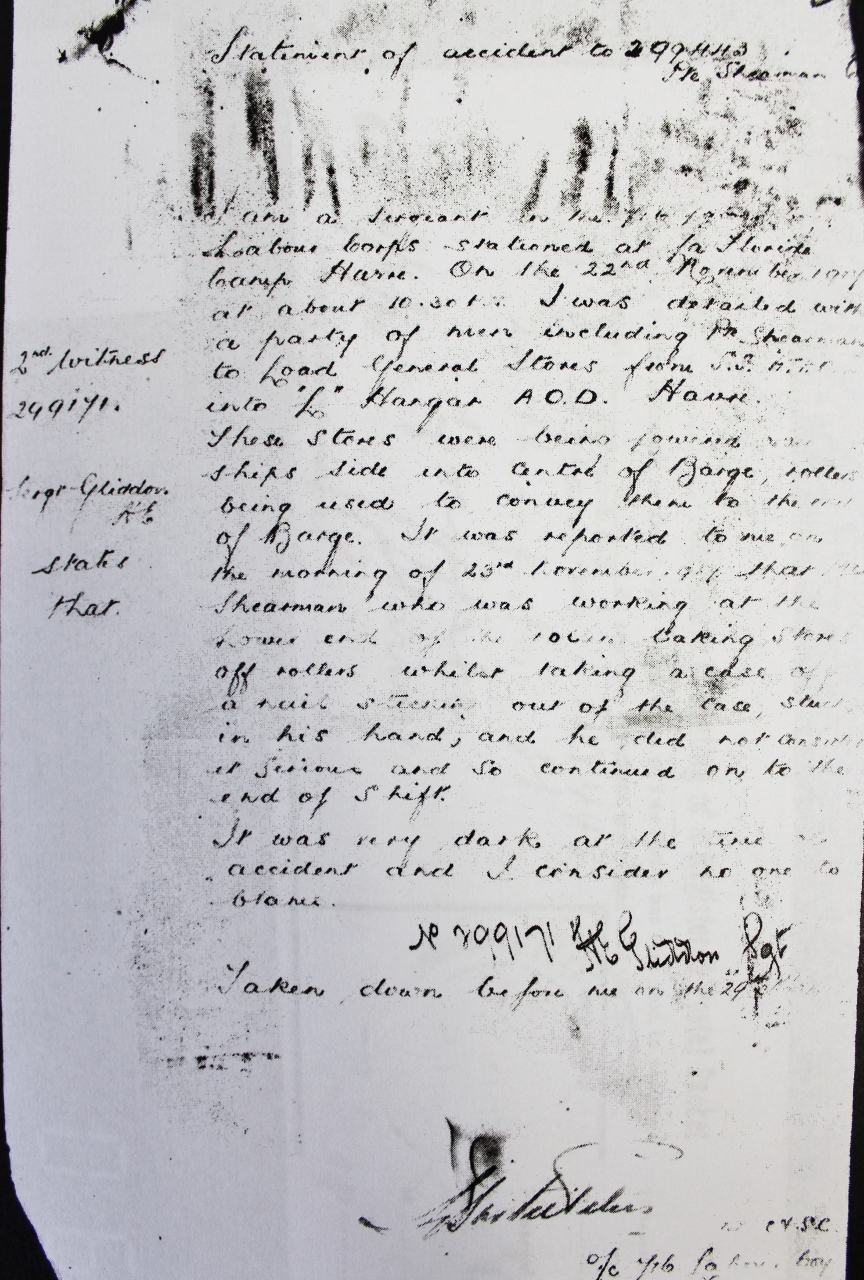 Statement of accident to 299443
Pte Shearman
I am a Sergeant in the
Labour Corps stationed at La Floride
Camp Havre. On the 22nd November
at about 10.30 I was detailed with
a party of men including Pte Shearman
2nd Witness
to Load General Stores from S.S.
299171.
into "L" Hangar A.O.D. Havre.
These Stores were being
Sergt Gliddon.
H E
ships side into centre of Barge, rollers
being used to convey them to the
of Barge. It was reported to me on
states
the morning of 23rd November that
that.
Shearman who was working at the
lower end of the taking Stores
off rollers whilst taking a case off
a nail sticking out of the case, stuck
in his hand, and he did not consider
it serious and so continued on to the
end of Shift.
It was very dark at the time
accident and I consider no one to
blame.
No 299171 H E Gliddon Sgt
Taken down before me on the 29
o/c Labour Coy